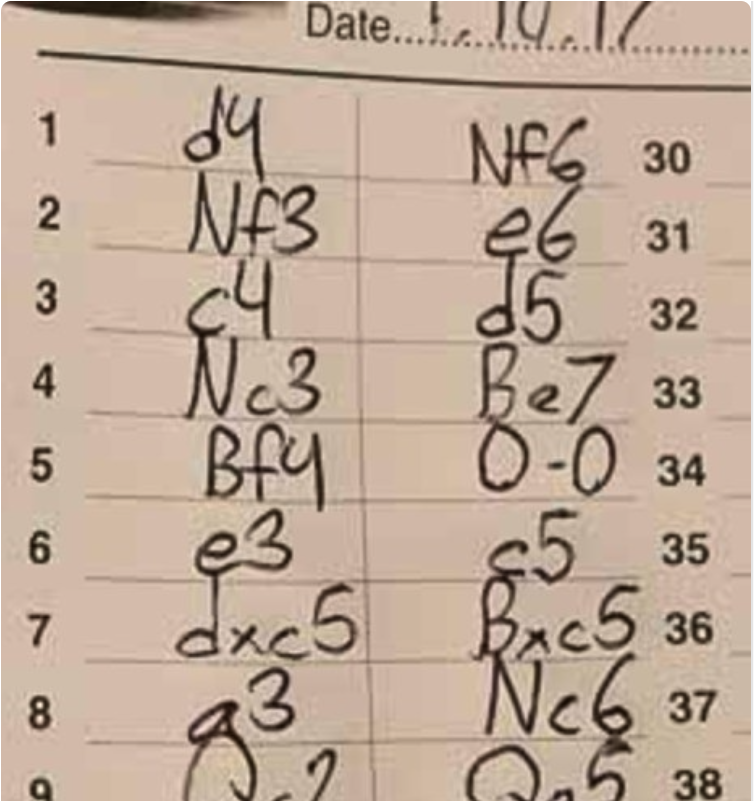 Date
1 d4 Nf6 30
2 Nf3 e6 31
3 c4 d5 32
4 Nc3 Be7 33
5 Bf4 O-O 34
6 e3 c5 35
7 dxc5 Bxc5 36
8 a3 Nc6 37
9 38